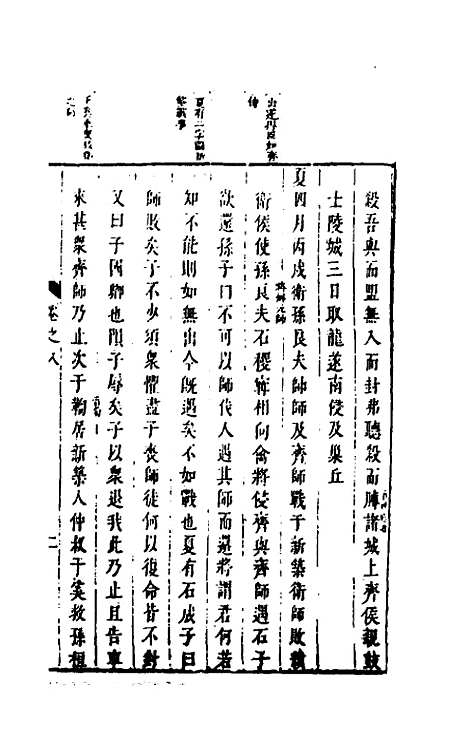 殺吾與而盟無入而封弗聽殺而膊諸城上齊侯親鼓
士陵城三日取龍遂南侵及巢丘
夏四月丙戌衛孫良夫帥師及齊師戰于新築衛師敗績
衛侯使孫良夫石稷甯相向禽將侵齊與齊師遇石子
欲還孫子曰不可以師伐人遇其師而還將謂君何若
知不能則如無出今既遇矣不如戰也夏有石成子曰
師敗矣子不少須衆懼盡子喪師徒何以復命皆不對
又曰子國卿也隕子辱矣子以衆退我此乃止且告車
來甚衆齊師乃止次于鞫居新築人仲叔于奚救孫桓
卷之八
二